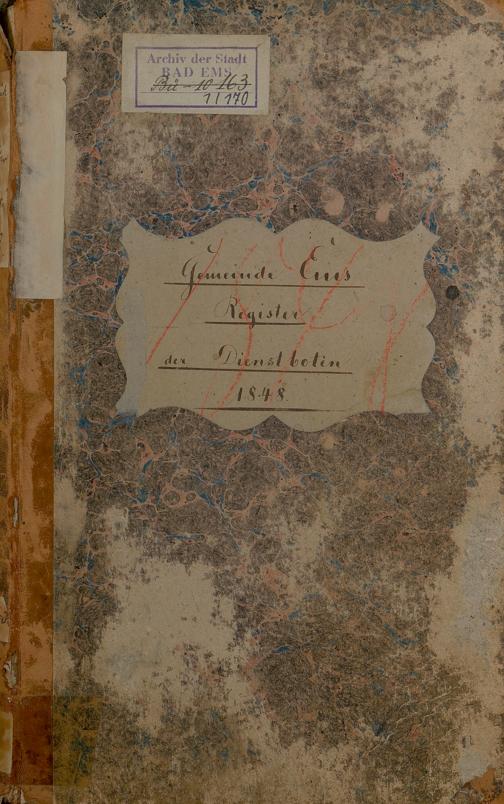 Archiv der Stadt
BAD EMS
Bü - 10 163
11170
Gemeinde Ems
Register
der Dienstboten
1848